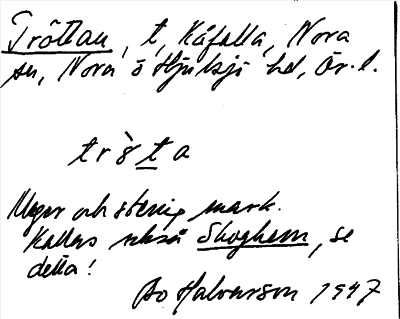 Tröttan, t, Kåfalla, Nora
sn, Nora o Hjulsjö hd, Ör. l.
trò̀ta
Mager och stenig mark.
Kallas också Skoghem, se
detta!
Bo Halvarson 1947